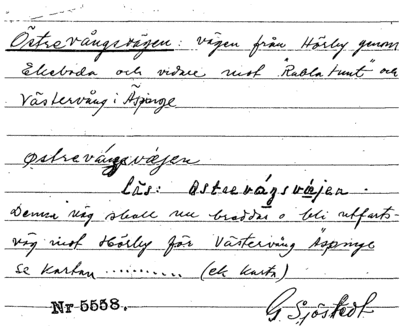 Östrevångsvägen: vägen från Hörby genom
Ekeboda och vidare mot "Rabla tunt" och
Västervång i Äspinge
østrevángsvæjen
läs: østrevágsvæjen.
Denna väg skall nu breddas o bli utfarts-
väg mot Hörby för Västervång Äspinge
se kartan .......... (ek karta)
Nr 5558. G. Sjöstedt